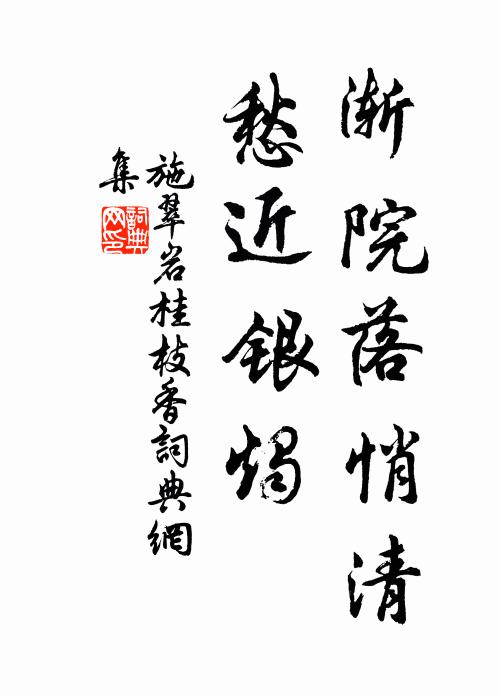 漸院落悄清
愁近銀燭
施翠岩桂枝香詞典網
集
詞典
网印